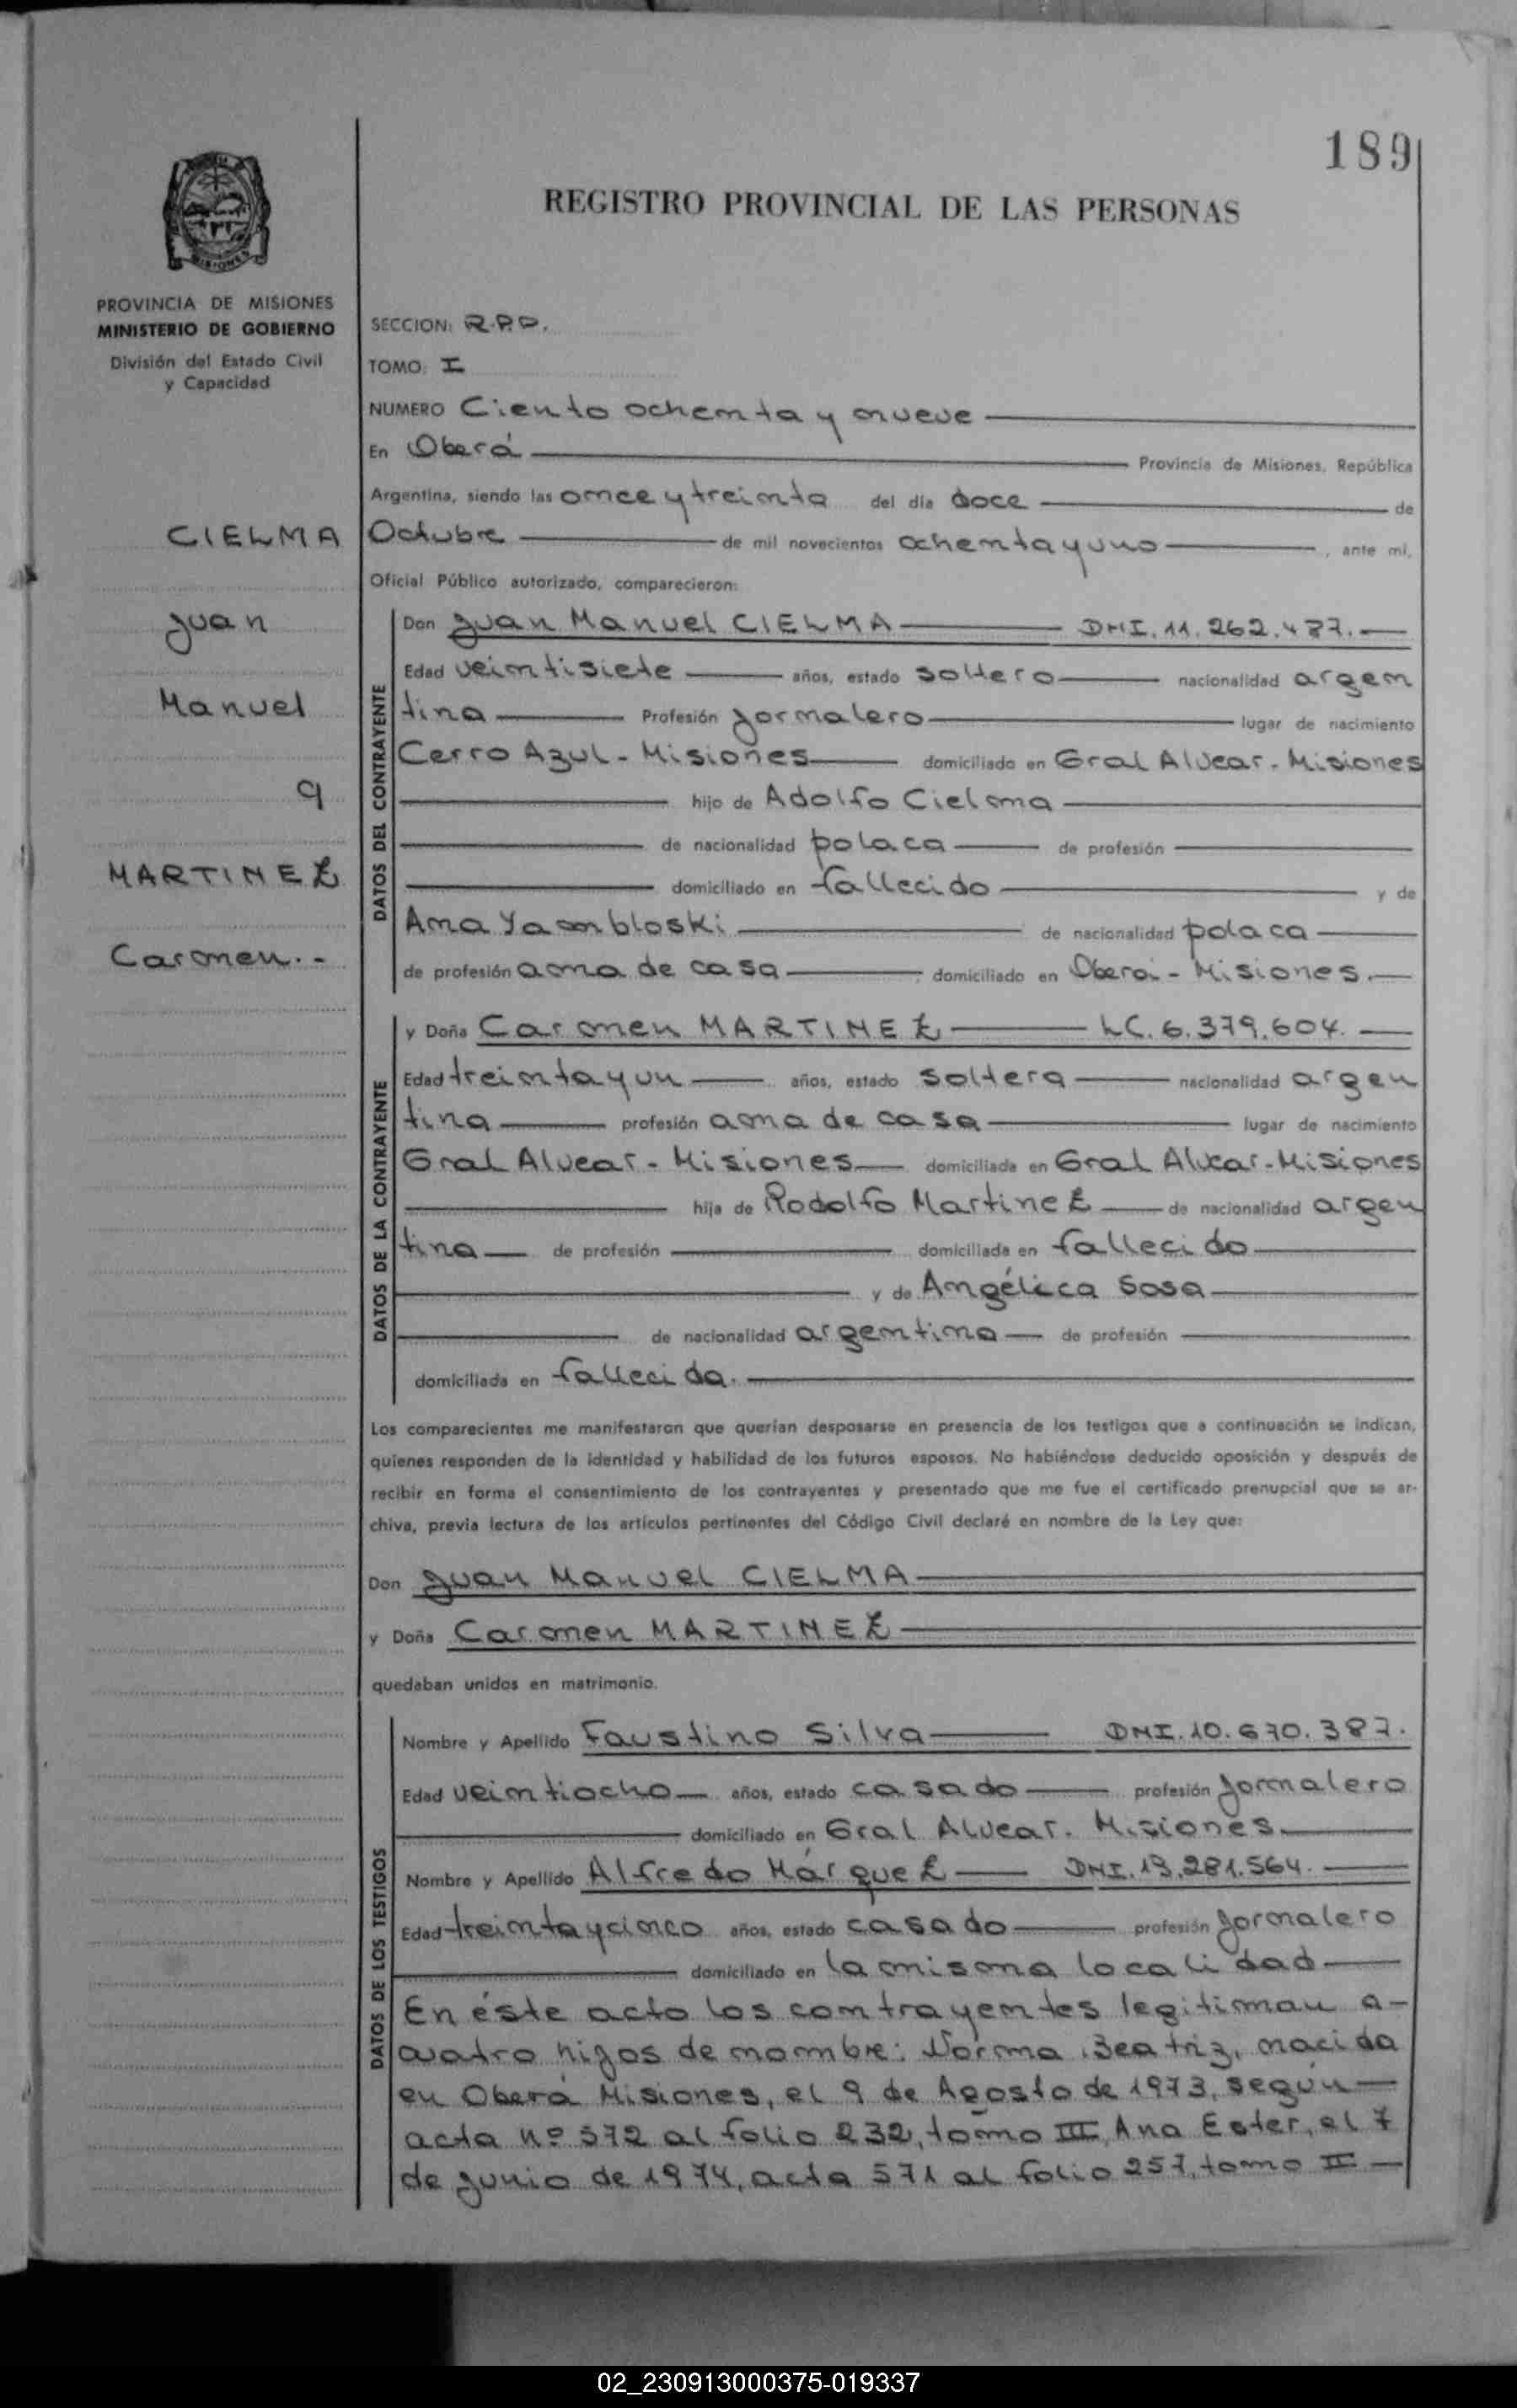 189
REGISTRO PROVINCIAL DE LAS PERSONAS
MISIONES
PROVINCIA DE MISIONES
MINISTERIO DE GOBIERNO
División del Estado Civil
y Capacidad
CIELMA
Juan
Manuel
y
MARTINEZ
Carmen.-
SECCION: R.P.P.
TOMO: I
NUMERO Ciento ochenta y nueve
En Oberá Provincia de Misiones, República
Argentina, siendo las once y treinta del día doce de
Octubre de mil novecientos ochenta y uno, ante mí,
Oficial Público autorizado, comparecieron:
DATOS DEL CONTRAYENTE
Don Juan Manuel CIELMA DNI. 11.262.487.
Edad veintisiete años, estado soltero nacionalidad argen
tina Profesión Jornalero lugar de nacimiento
Cerro Azul - Misiones domiciliado en Gral Alvear - Misiones
hijo de Adolfo Cielma
de nacionalidad polaca de profesión
domiciliado en fallecido y de
Ana Yambloski de nacionalidad polaca
de profesión ama de casa domiciliado en Oberá - Misiones.
DATOS DE LA CONTRAYENTE
y Doña Carmen MARTINEZ LC. 6.379.604.
Edad treinta y un años, estado soltera nacionalidad argen
tina profesión ama de casa lugar de nacimiento
Gral Alvear - Misiones domiciliada en Gral Alvear - Misiones
hija de Rodolfo Martinez de nacionalidad argen
tina de profesión domiciliada en fallecido
y de Angélica Sosa
de nacionalidad argentina de profesión
domiciliada en fallecida.
Los comparecientes me manifestaron que querían desposarse en presencia de los testigos que a continuación se indican,
quienes responden de la identidad y habilidad de los futuros esposos. No habiéndose deducido oposición y después de
recibir en forma el consentimiento de los contrayentes y presentado que me fue el certificado prenupcial que se ar-
chiva, previa lectura de los artículos pertinentes del Código Civil declaré en nombre de la Ley que:
Don Juan Manuel CIELMA
y Doña Carmen MARTINEZ
quedaban unidos en matrimonio.
DATOS DE LOS TESTIGOS
Nombre y Apellido Faustino Silva DNI. 10.670.387.
Edad veintiocho años, estado casado profesión Jornalero
domiciliado en Gral Alvear. Misiones
Nombre y Apellido Alfredo Márquez DNI. 13.281.564.
Edad treinta y cinco años, estado casado profesión Jornalero
domiciliado en la misma localidad
En éste acto los contrayentes legitiman a-
cuatro hijos de nombre: Norma Beatriz, nacida
en Oberá Misiones, el 9 de Agosto de 1973, según
acta nº 572 al folio 232, tomo III, Ana Ester, el 7
de junio de 1974, acta 571 al folio 257, tomo II
02_230913000375-019337